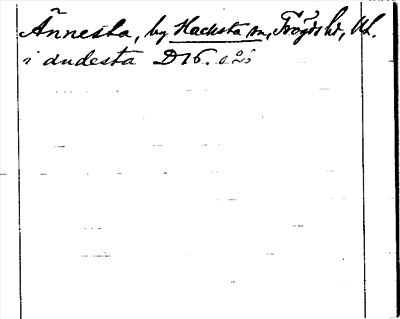 Ännesta, by Hacksta sn, Trögds hd, Upl.
i andesta D16.